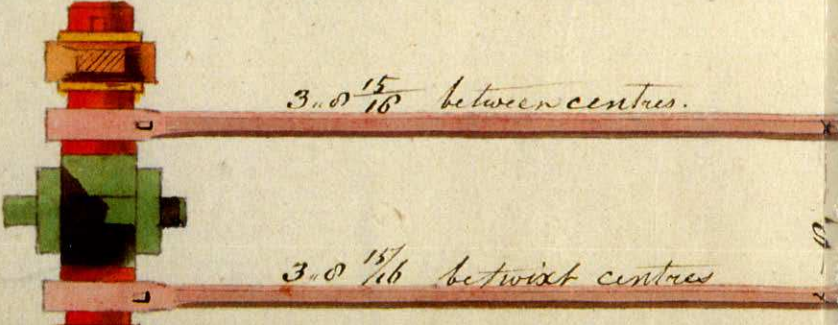 3"8 15/16 between centres.
3"8 15/16 betwixt centres